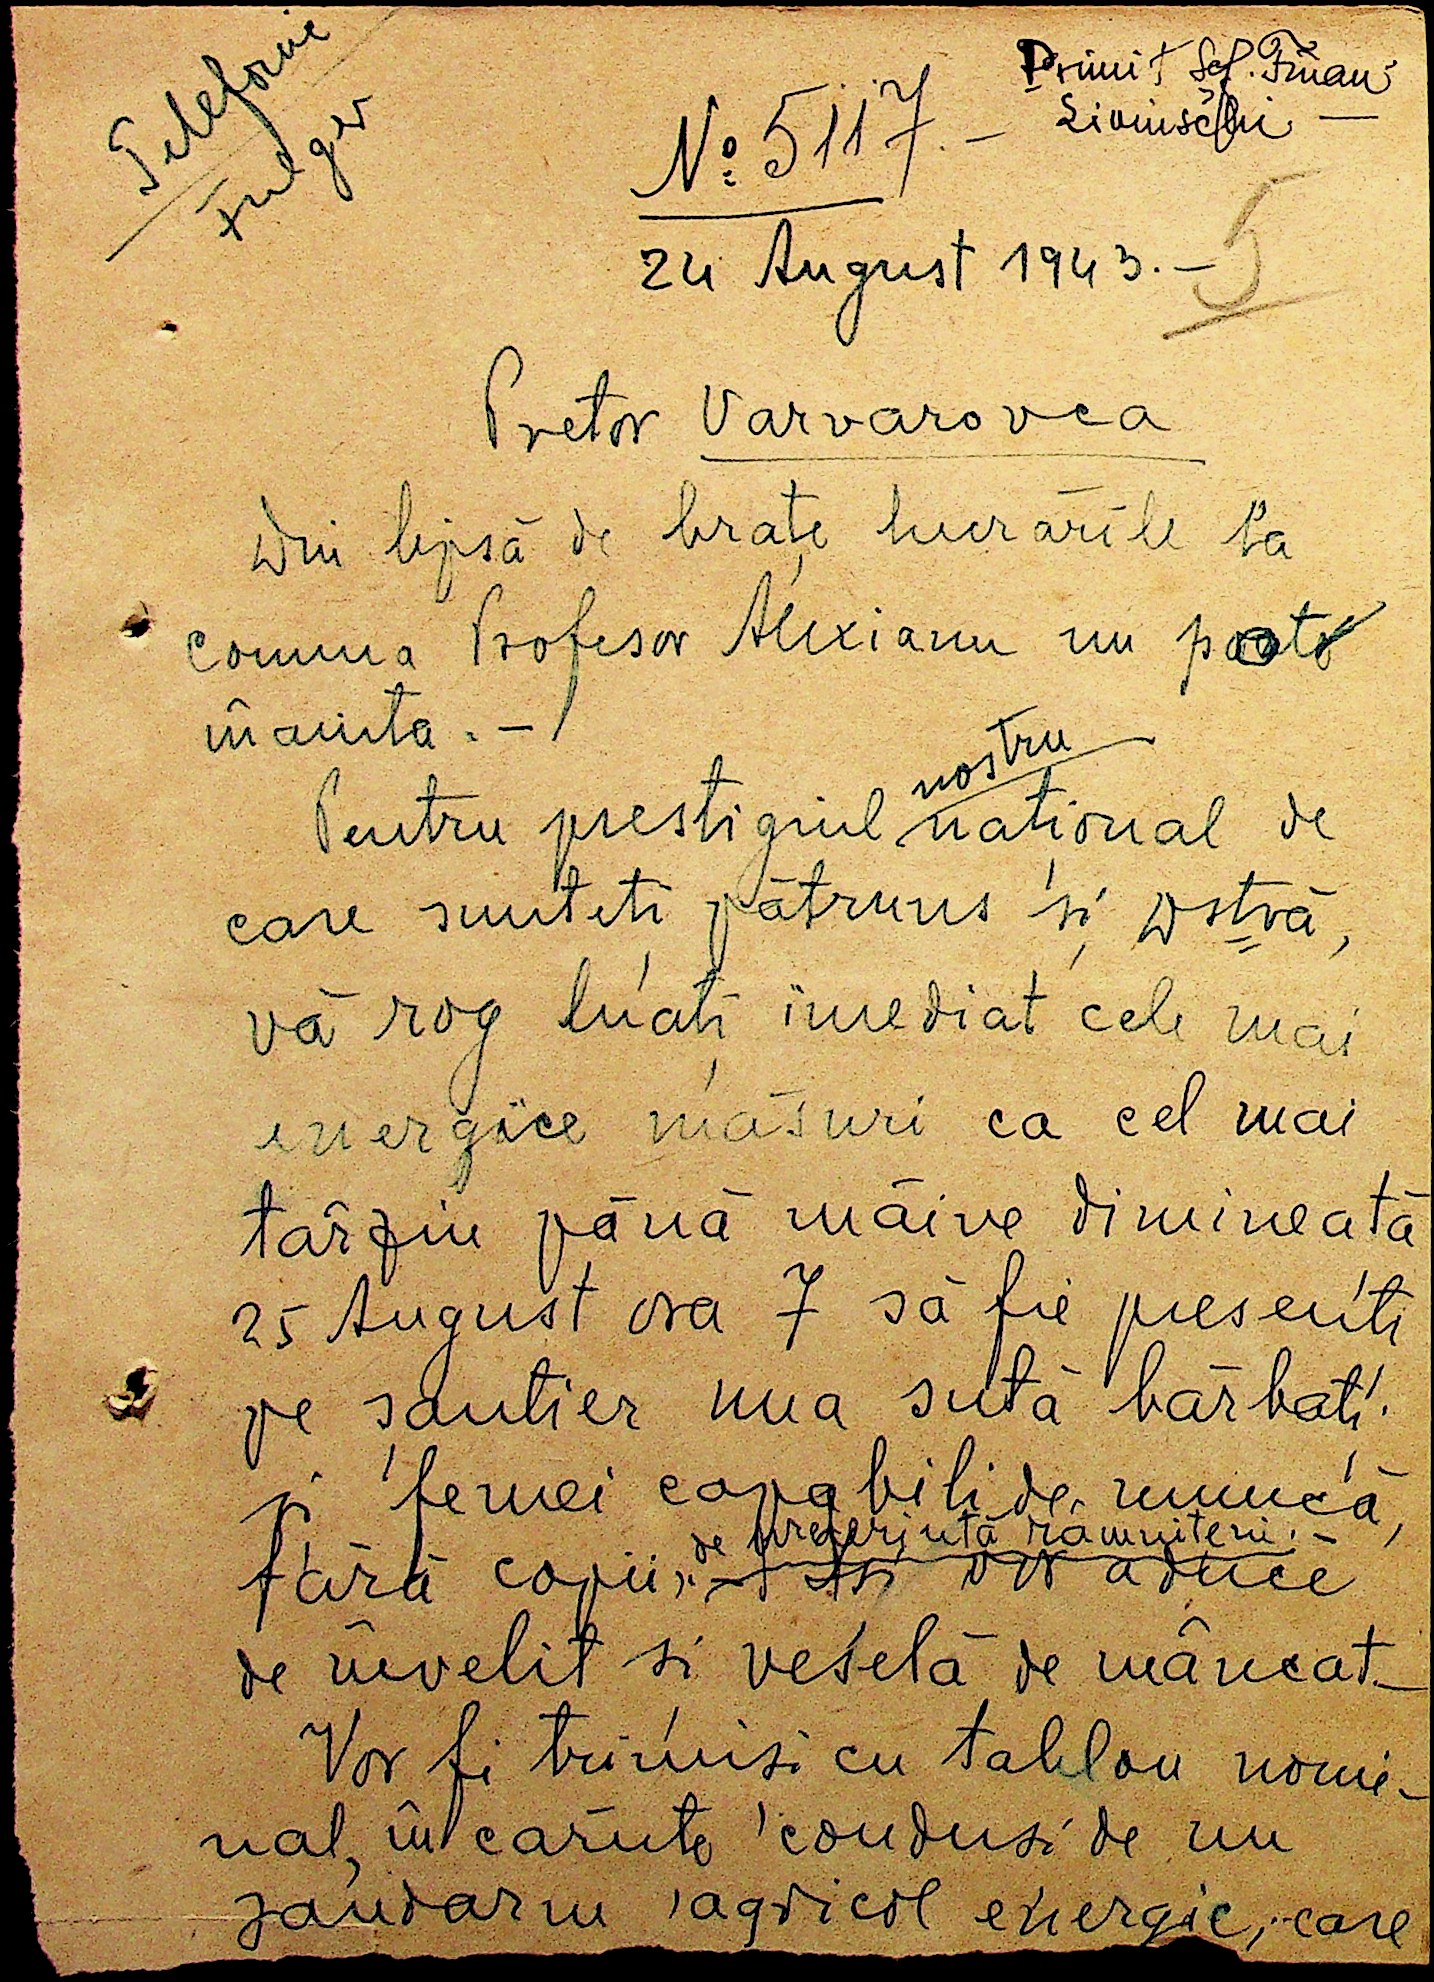 Telefonic
Fulger
Primit Sef. Finan
Livinschi —
№ 5117. —
5
24 August 1943. —
Pretor Varvarovca
Din lipsă de brațe lucrările la
comuna Profesor Alexianu nu poate
înainta. —
nostru
Pentru prestigiul național de
care sunteți pătruns și Dstvă,
vă rog luați imediat cele mai
energice măsuri ca cel mai
târziu până mâine dimineață
25 August ora 7 să fie presenți
pe șantier una sută bărbați
și femei capabili de muncă,
de preferință râmnițeni. —
fără copii, își vor aduce
de învelit și veselă de mâncat —
Vor fi trimiși cu tablou nomi-
nal, în căruțe conduși de un
jandarm agricol energic, care